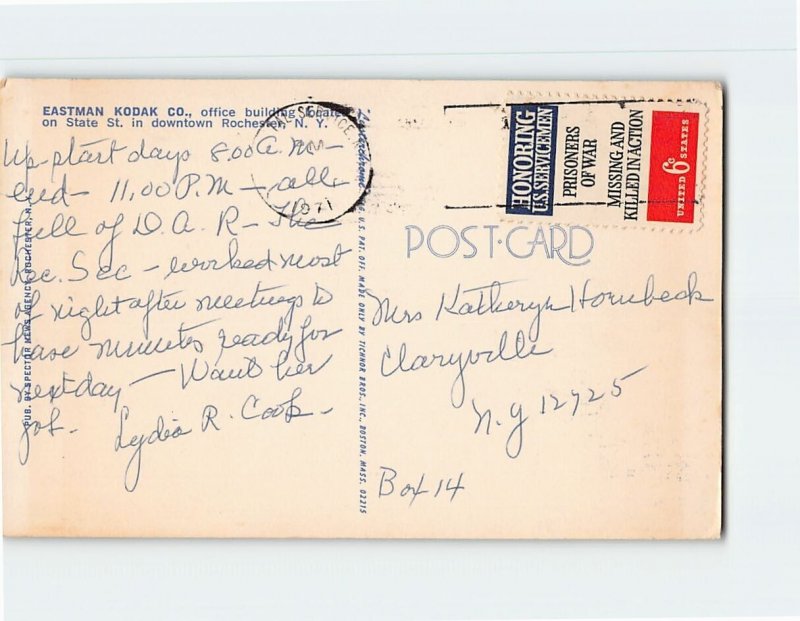 EASTMAN KODAK CO., office building located
on State St. in downtown Rochester, N. Y.
Up-start days 8.00 A.M-
end - 11.00 P.M - all
full of D.A.R - The
Rec. Sec - worked most
of night after meetings to
have minutes ready for
next day - Want her
job.
Lydia R. Cook -
PUB. BY SPECTOR NEWS AGENCY, ROCHESTER, N.Y.
REG. U. S. PAT. OFF. MADE ONLY BY TICHNOR BROS., INC., BOSTON, MASS. 02215
POSTAL SERVICE
1971
HONORING
U.S. SERVICEMEN
PRISONERS
OF WAR
MISSING AND
KILLED IN ACTION
UNITED 6c STATES
POST-CARD
Mrs Katheryn Hornbeck
Claryville
N.Y 12725
Box 14